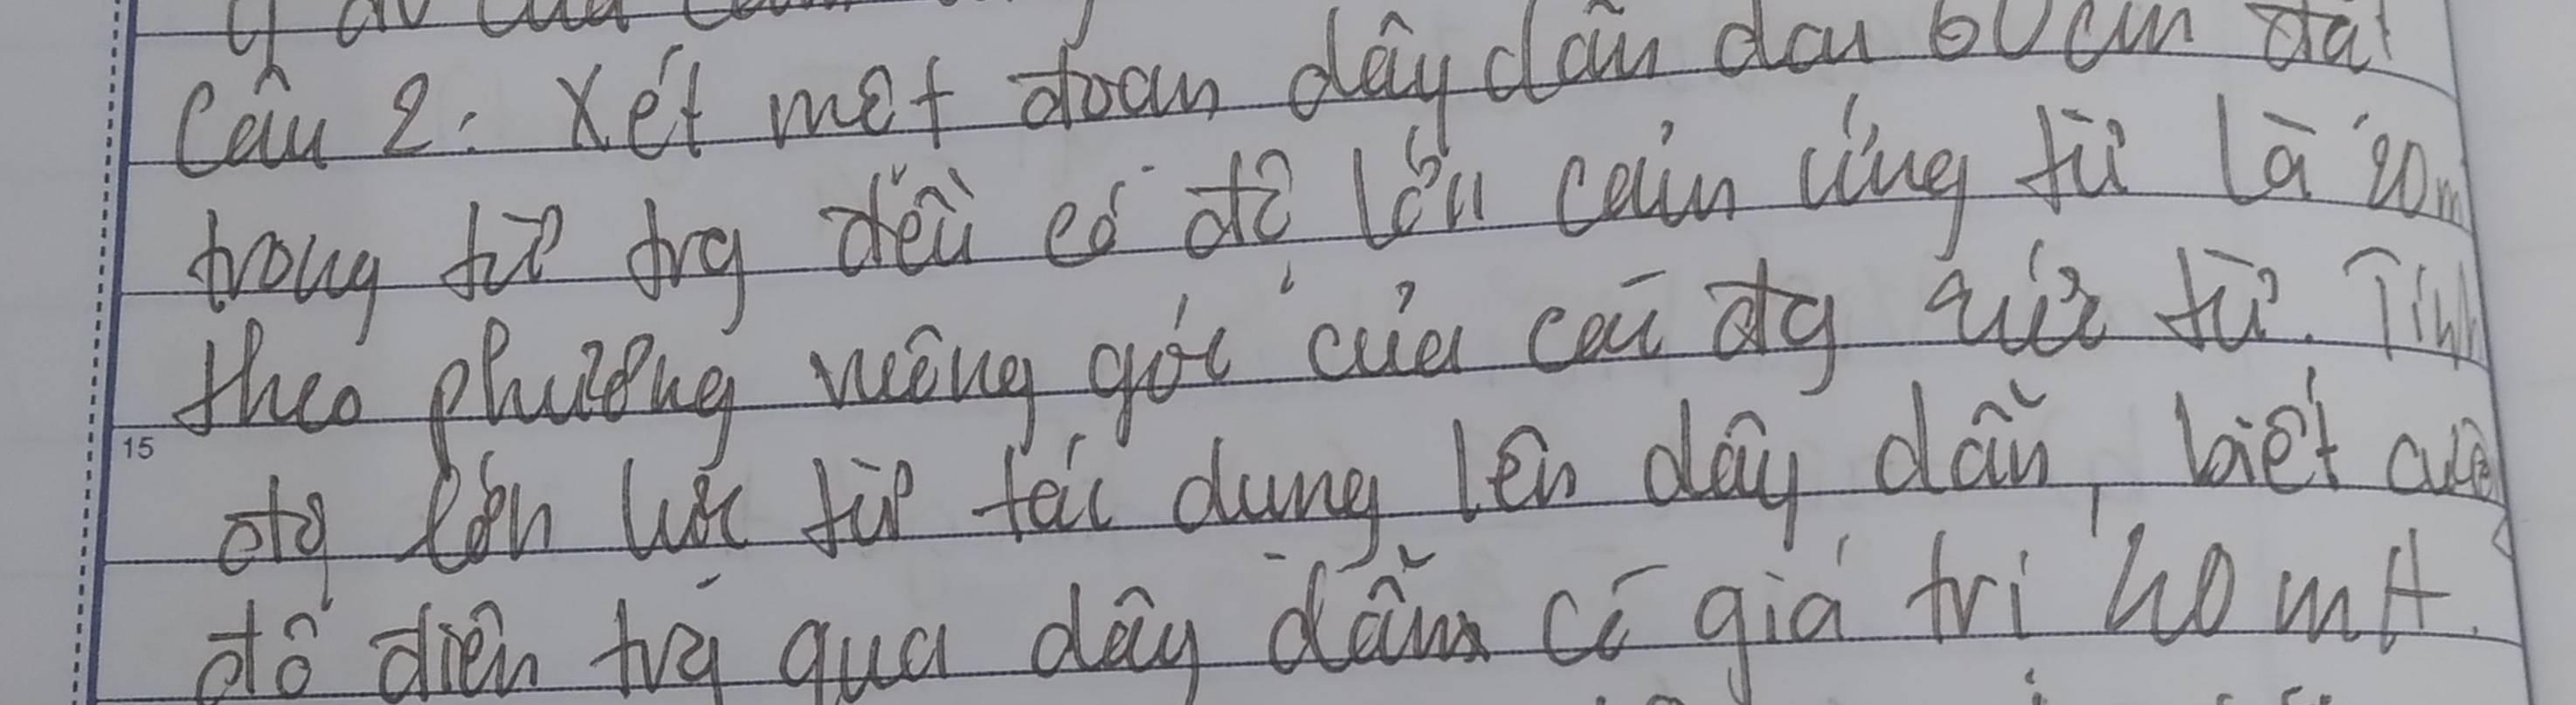 Câu 2: Xét một đoạn dây dẫn dài 60cm đặt
trong từ trg đều có độ lớn cảm ứng từ là 20m
theo phương vuông góc của các đg sức từ. Tính
độ lớn lực từ tác dụng lên dây dẫn, biết cườ
độ điện trg qua dây dẫn có giá trị 40 mA.